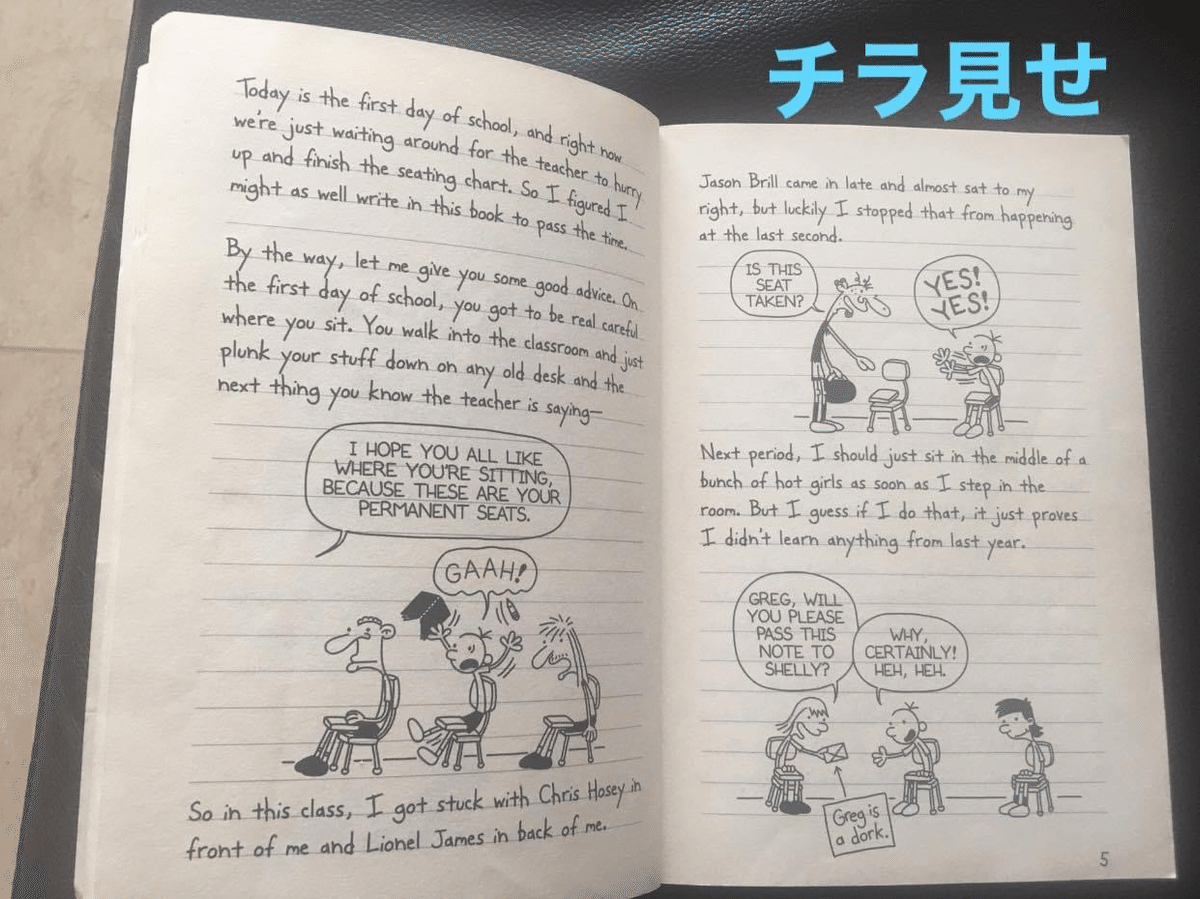 チラ見せ
Today is the first day of school, and right now
we're just waiting around for the teacher to hurry
up and finish the seating chart. So I figured I
might as well write in this book to pass the time.
By the way, let me give you some good advice. On
the first day of school, you got to be real careful
where you sit. You walk into the classroom and just
plunk your stuff down on any old desk and the
next thing you know the teacher is saying—
I HOPE YOU ALL LIKE
WHERE YOU'RE SITTING,
BECAUSE THESE ARE YOUR
PERMANENT SEATS.
GAAH!
So in this class, I got stuck with Chris Hosey in
front of me and Lionel James in back of me.
Jason Brill came in late and almost sat to my
right, but luckily I stopped that from happening
at the last second.
IS THIS
SEAT
TAKEN?
YES!
YES!
Next period, I should just sit in the middle of a
bunch of hot girls as soon as I step in the
room. But I guess if I do that, it just proves
I didn't learn anything from last year.
GREG, WILL
YOU PLEASE
PASS THIS
NOTE TO
SHELLY?
WHY,
CERTAINLY!
HEH, HEH.
Greg is
a dork.
5